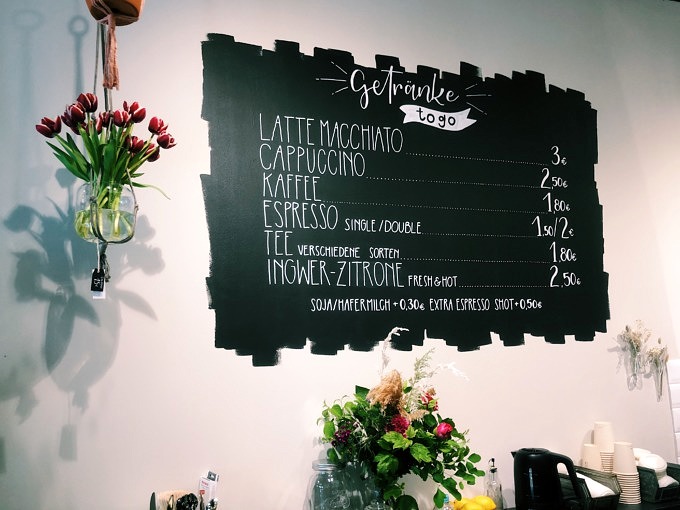 Getränke
to go
LATTE MACCHIATO 3€
CAPPUCCINO 2,50€
KAFFEE 1,80€
ESPRESSO SINGLE/DOUBLE 1,50/2€
TEE VERSCHIEDENE SORTEN 1,80€
INGWER-ZITRONE FRESH & HOT 2,50€
SOJA/HAFERMILCH +0,30€ EXTRA ESPRESSO SHOT +0,50€